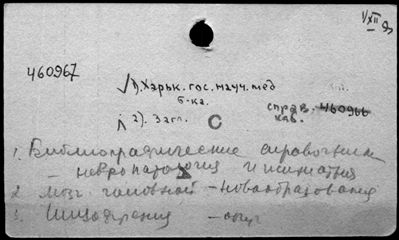 1/XII
460967
1). Харьк. гос. науч. мед
б-ка.
справ. 460966
каб.
2). Загл. С
1. Библиографические справочники
- невропатология и психиатрия
2. мозг головной - новообразования
3. Шизофрения -